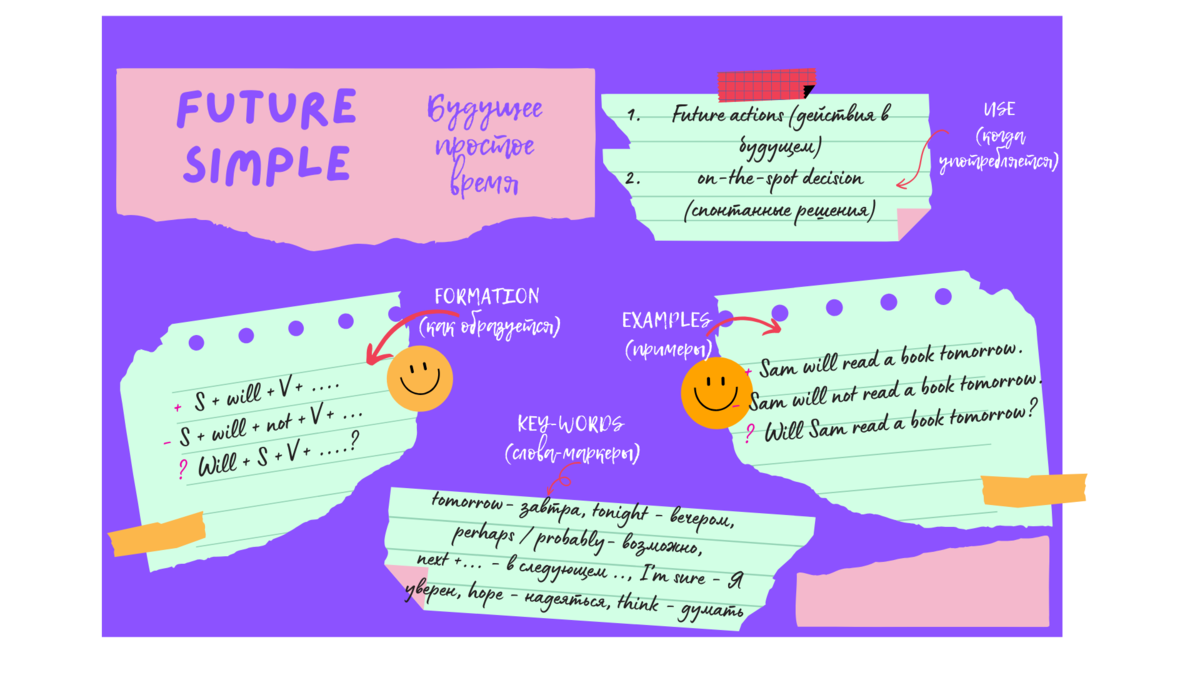 FUTURE
SIMPLE
Будущее
простое
время
1. Future actions (действия в
будущем)
2. on-the-spot decision
(спонтанные решения)
USE
(когда
употребляется)
FORMATION
(как образуется)
+ S + will + V + ....
- S + will + not + V + ...
? Will + S + V + ....?
EXAMPLES
(примеры)
+ Sam will read a book tomorrow.
- Sam will not read a book tomorrow.
? Will Sam read a book tomorrow?
KEY-WORDS
(слова-маркеры)
tomorrow - завтра, tonight - вечером,
perhaps / probably - возможно,
next +... - в следующем .., I'm sure - Я
уверен, hope - надеяться, think - думать